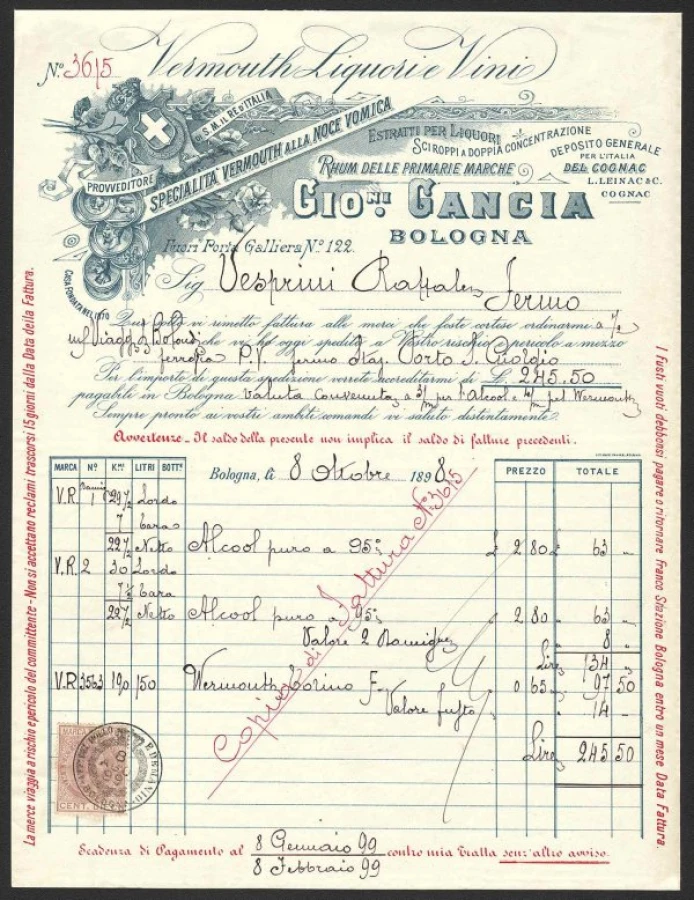 Nº 3615 Vermouth Liquori e Vini
PROVVEDITORE DI S. M. IL RE D'ITALIA
SPECIALITÀ VERMOUTH ALLA NOCE VOMICA
ESTRATTI PER LIQUORI
SCIROPPI A DOPPIA CONCENTRAZIONE
RHUM DELLE PRIMARIE MARCHE
DEPOSITO GENERALE
PER L'ITALIA
DEL COGNAC
L. LEINAC & C.
COGNAC
GIO.NI GANCIA
BOLOGNA
Fuori Porta Galliera Nº 122.
CASA FONDATA NEL
Sig Vesprini Raffaele Fermo
vi rimetto fattura alle merci che foste cortese ordinarmi a
Viagg che vi ho oggi spedito a Vostro rischio e pericolo a mezzo
ferrovia P.V. fermo Staz. Porto S. Giorgio
Per l'importo di questa spedizione vorrete accreditarmi di L. 245.50
pagabili in Bologna valuta convenuta a 3/m per l'Alcool e 4/m pel Wermouth
Sempre pronto ai vostri ambiti comandi vi saluto distintamente
Avvertenze - Il saldo della presente non implica il saldo di fatture precedenti.
MARCA Nº K.mi LITRI BOTT.e Bologna, li 8 Ottobre 1898 PREZZO TOTALE
V.R. 1 29 1/2 Lordo
7 tara
22 1/2 Netto Alcool puro a 95° £ 2 80 £ 63 "
V.R. 2 30 Lordo
7 1/2 tara
22 1/2 Netto Alcool puro a 95° 2 80 63 "
Valore 2 Damigne 8 "
Lire 134 "
V.R. 3563 190 150 Wermouth Torino F. 0 65 97 50
Valore fusto 14 "
Lire 245 50
Copia di Fattura Nº 3615
MARCA
CENT.
Scadenza di Pagamento al 8 Gennaio 99 contro mia Tratta senz'altro avviso.
8 Febbraio 99
La merce viaggia a rischio e pericolo del committente - Non si accettano reclami trascorsi 15 giorni dalla Data della Fattura.
I Fusti vuoti debbonsi pagare o ritornare franco Stazione Bologna entro un mese Data Fattura.